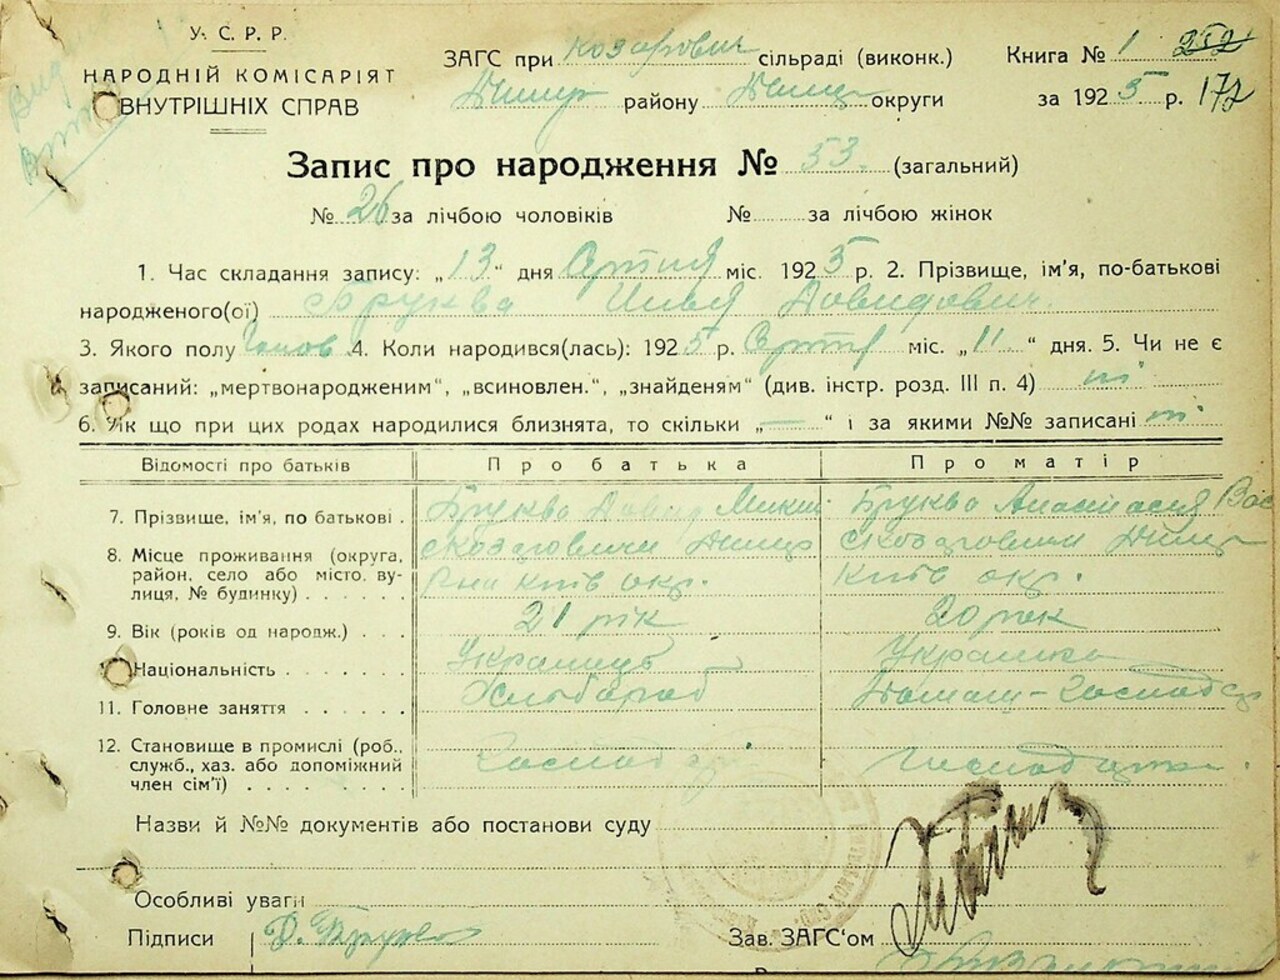 У. С. Р. Р.
НАРОДНІЙ КОМІСАРІЯТ
ВНУТРІШНІХ СПРАВ
ЗАГС при Козарович сільраді (виконк.)
Димир району округи
Книга № 1 252
за 1925 р. 172
Запис про народження № 53. (загальний)
№ 26 за лічбою чоловіків № за лічбою жінок
1. Час складання запису: „13“ дня Серпня міс. 1925 р. 2. Прізвище, ім'я, по-батькові
народженого(ої) Бруква Илья Давидович.
3. Якого полу 4. Коли народився(лась): 1925 р. міс. „11“ дня. 5. Чи не є
записаний: „мертвонародженим“, „всиновлен.“, „знайденям“ (див. інстр. розд. III п. 4) ні
6. Як що при цих родах народилися близнята, то скільки „—“ і за якими №№ записані ні
Відомості про батьків Про батька Про матір
7. Прізвище, ім'я, по батькові . Бруква Давид Бруква Анастасія Вас
8. Місце проживання (округа, район, село або місто, вулиця, № будинку) . . . . . .
с Козаровичи Димир с Козаровичи Димир
Рни київ окр. Київ окр.
9. Вік (років од народж.) . . . 21 рік 20 рок
10. Національність . . . . . . . Українець Українка
11. Головне заняття . . . . . . Хлібороб
12. Становище в промислі (роб., служб., хаз. або допоміжний член сім'ї) . . . . . . . . .
Назви й №№ документів або постанови суду
Особливі уваги
Підписи Д. Бруква Зав. ЗАГС'ом